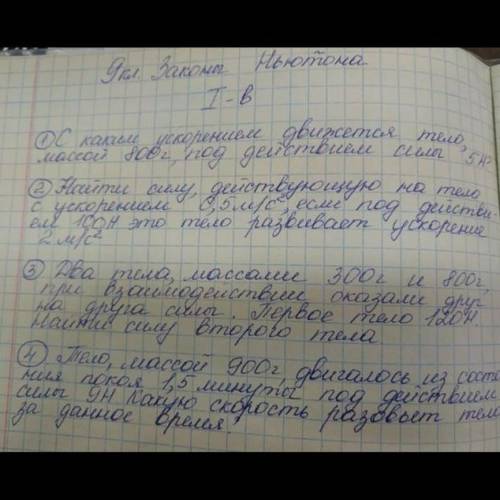 9кл. Законы Ньютона
I-в
① С каким ускорением движется тело,
массой 800г, под действием силы 5Н
② Найти силу, действующую на тело
с ускорением 0,5м/с², если под действи-
ем 100Н это тело развивает ускорение
2м/с²
③ Два тела, массами 300г и 800г,
при взаимодействии оказали друг
на друга силы. Первое тело 120Н.
Найти силу второго тела
④ Тело, массой 900г, двигалось из состо-
ния покоя 1,5 минуты под действием
силы 9Н Какую скорость разовьет тело
за данное время?